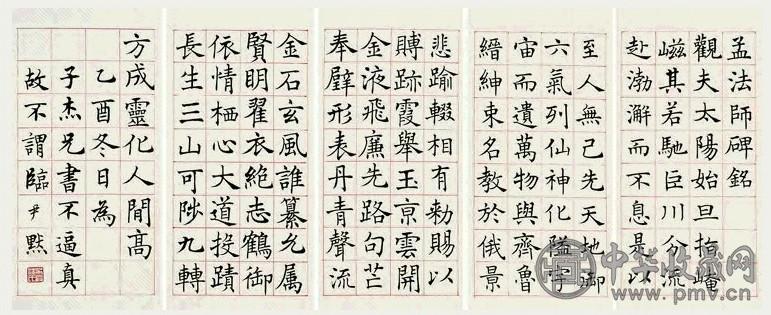 孟法師碑銘
觀夫太陽始旦指崦
嵫其若馳巨川分流
赴渤澥而不息是以
至人無己先天地御
六氣列仙神化隘宇
宙而遺萬物與齊魯
縉紳束名教於俄景
悲踰輟相有勑賜以
賻跡霞舉玉京雲開
金液飛廉先路句芒
奉璧形表丹青聲流
金石玄風誰纂允属
賢明翟衣絕志鶴御
依情栖心大道投蹟
長生三山可陟九轉
方成靈化人間髙
乙酉冬日為
子杰兄書不逼真
故不謂臨 尹默
中华收藏网
www.pmv.cn